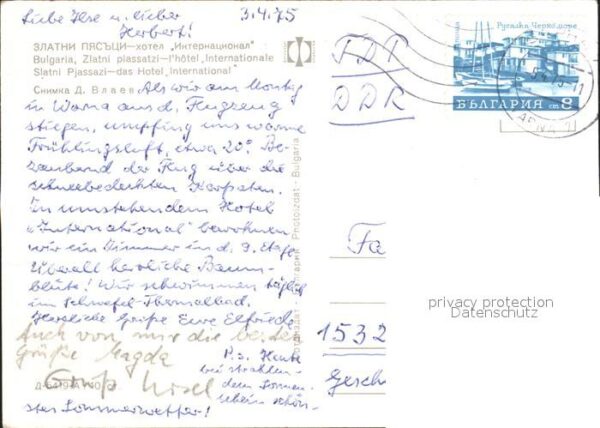 Liebe Ilse u. lieber
Herbert!
3.4.75
ЗЛАТНИ ПЯСЪЦИ—хотел „Интернационал"
Bulgaria, Zlatni plassatzi—l'hôtel „Internationale
Slatni Pjassazi—das Hotel „International"
Снимка Д. Влаев
Als wir am Montag
in Warna aus d. Flugzeug
stiegen, empfing uns warme
Frühlingsluft, etwa 20°. Be-
zaubernd der Flug über die
schneebedeckten Karpaten.
In umstehendem Hotel
„International" bewohnen
wir ein Zimmer in d. 9. Etage
Überall herrliche Baum-
blüte! Wir schwimmen täglich
im Schwefel-Thermalbad.
Herzliche Grüße Eure Elfriede
Auch von mir die besten
Grüße Magda
Gruß Ursel
P.s. Heute
bei strahlen-
dem Sonnen-
schein schön-
stes Sommerwetter!
България Photoizdat - Bulgaria
DDR
Русалка Черно море
поща
БЪЛГАРИЯ ст 8
Fa
1532
Gesch
privacy protection
Datenschutz